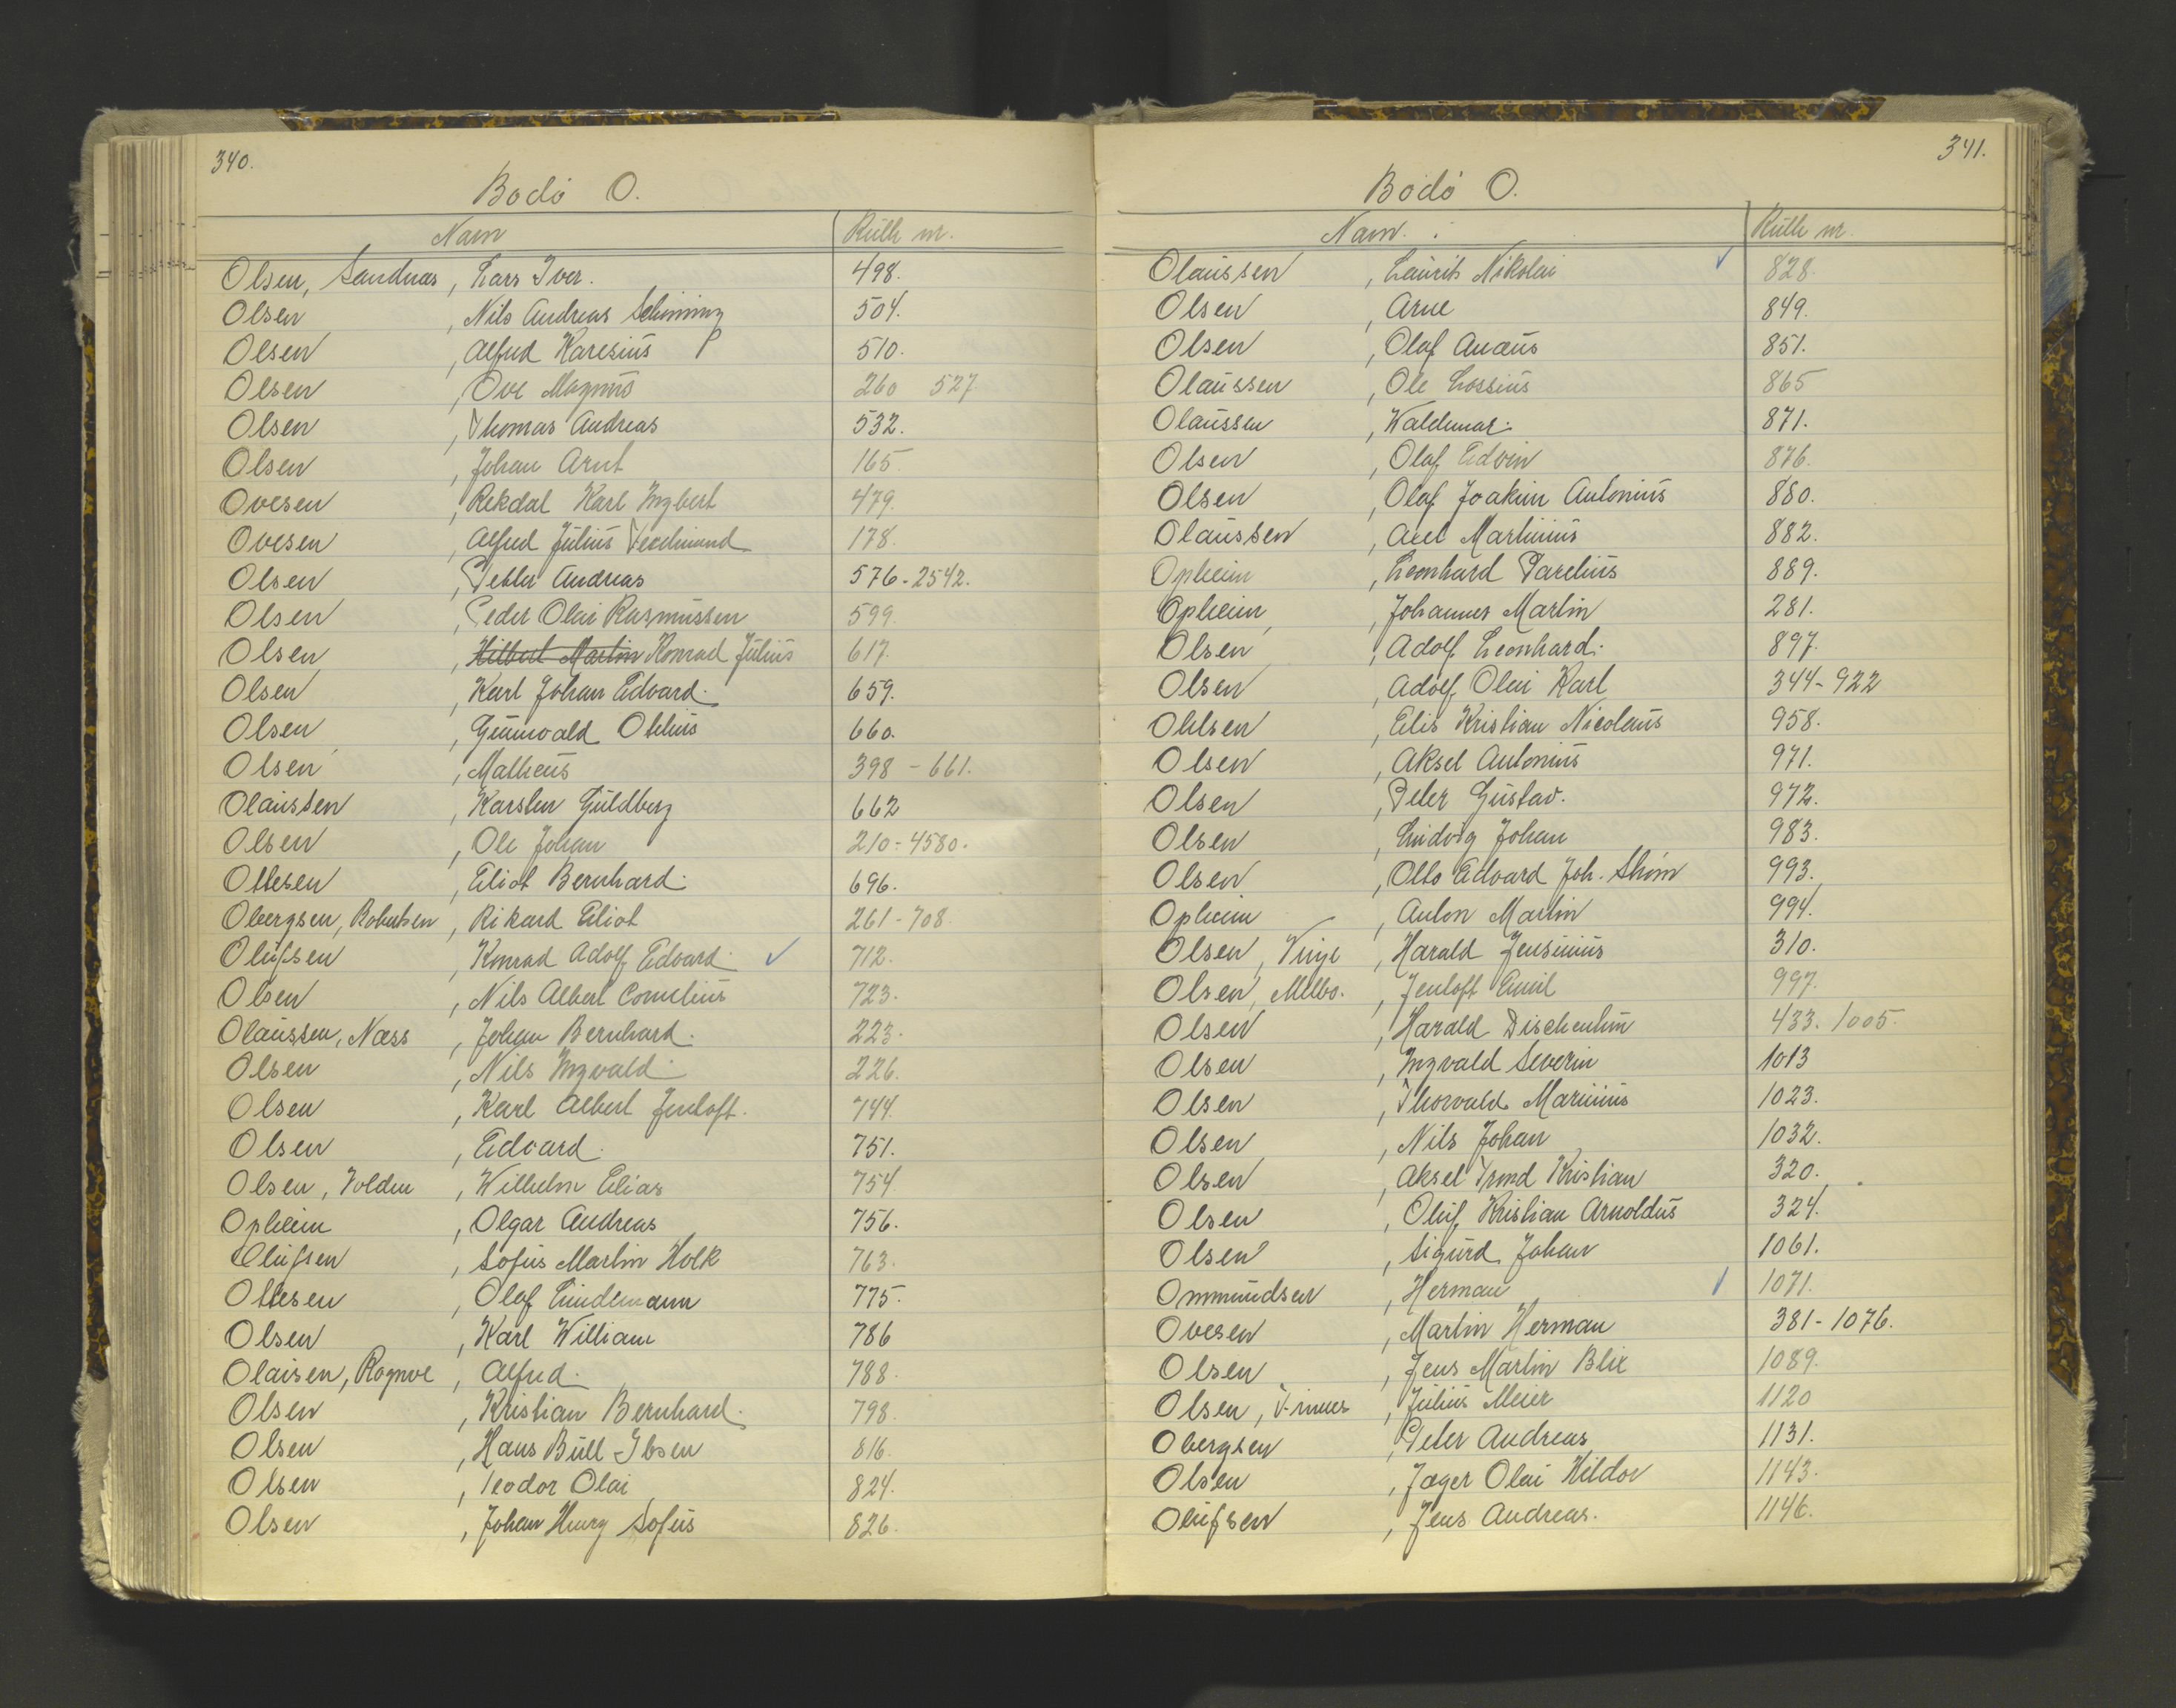 340.
Bodö O.
Navn Rulle nr.
Olsen, Sandnas, Lars Iver. 498.
Olsen, Nils Andreas Schining 504.
Olsen, Alfred Karesius 510.
Olsen, Ove Magnus 260 527
Olsen, Thomas Andreas 532.
Olsen, Johan Arnt 165.
Ovesen, Rekdal Karl Ingbert 479.
Ovesen, Alfred Julius Ferdinand 178.
Olsen, Petter Andreas 576-2542.
Olsen, Peder Olai Rasmussen 599.
Olsen, Hilbert Martin Konrad Julius 617.
Olsen, Karl Johan Edvard. 659.
Olsen, Grunvald Othlius 660.
Olsen, Matheus 398-661.
Olaussen, Karsten Guldberg 662
Olsen, Ole Johan 210-4580.
Ottesen, Eliot Bernhard. 696.
Obergsen, Robertsen, Rikard Eliot 261-708.
Olufsen, Konrad Adolf Edvard. ✓ 712.
Olsen, Nils Albert Cornelius 723.
Olaussen, Næss, Johan Bernhard. 223.
Olsen, Nils Ingvald 226.
Olsen, Karl Albert Jentoft. 744.
Olsen, Edvard. 751.
Olsen, Volden, Wilhelm Elias 754
Opheim, Olgar Andreas 756.
Olufsen, Sofus Martin Holk 763.
Ottesen, Olaf Lindemann 775.
Olsen, Karl William 786
Olaisen, Rognve, Alfred. 788.
Olsen, Kristian Bernhard. 798.
Olsen, Hans Bull Ibsen 816.
Olsen, Teodor Olai 824.
Olsen, Johan Henry Sofus 826.
341.
Bodö O.
Navn. Rulle nr.
Olaussen, Laurits Nikolai ✓ 828.
Olsen, Arne 849.
Olsen, Olaf Anæus 851.
Olaussen, Ole Lossius 865
Olaussen, Waldemar. 871.
Olsen, Olaf Edvin 876.
Olsen, Olaf Joakim Antonius 880.
Olaussen, Axel Martinius 882.
Opheim, Leonhard Parelius 889.
Opheim, Johannes Martin 281.
Olsen, Adolf Leonhard. 897.
Olsen, Adolf Olai Karl 344-922
Ohlsen, Elis Kristian Nicolaus 958.
Olsen, Aksel Antonius 971.
Olsen, Peter Gustav. 972.
Olsen, Ludvig Johan 983.
Olsen, Otto Edvard Joh. Strøm 993.
Opheim, Anton Martin 994.
Olsen, Vinje, Harald Jensinius 310.
Olsen, Melbo., Jentoft Emil 997.
Olsen, Harald Dischenthun 433. 1005.
Olsen, Ingvald Severin 1013
Olsen, Thorvald Marinius 1023.
Olsen, Nils Johan 1032.
Olsen, Aksel Trond Kristian 320.
Olsen, Oluf Kristian Arnoldus 324.
Olsen, Sigurd Johan 1061.
Ommundsen, Herman ✓ 1071.
Ovesen, Martin Herman 381-1076.
Olsen, Jens Martin Blix 1089.
Olsen, Julius Meier 1120
Obergsen, Peter Andreas 1131.
Olsen, Jæger Olai Hildor 1143.
Olufsen, Jens Andreas. 1146.